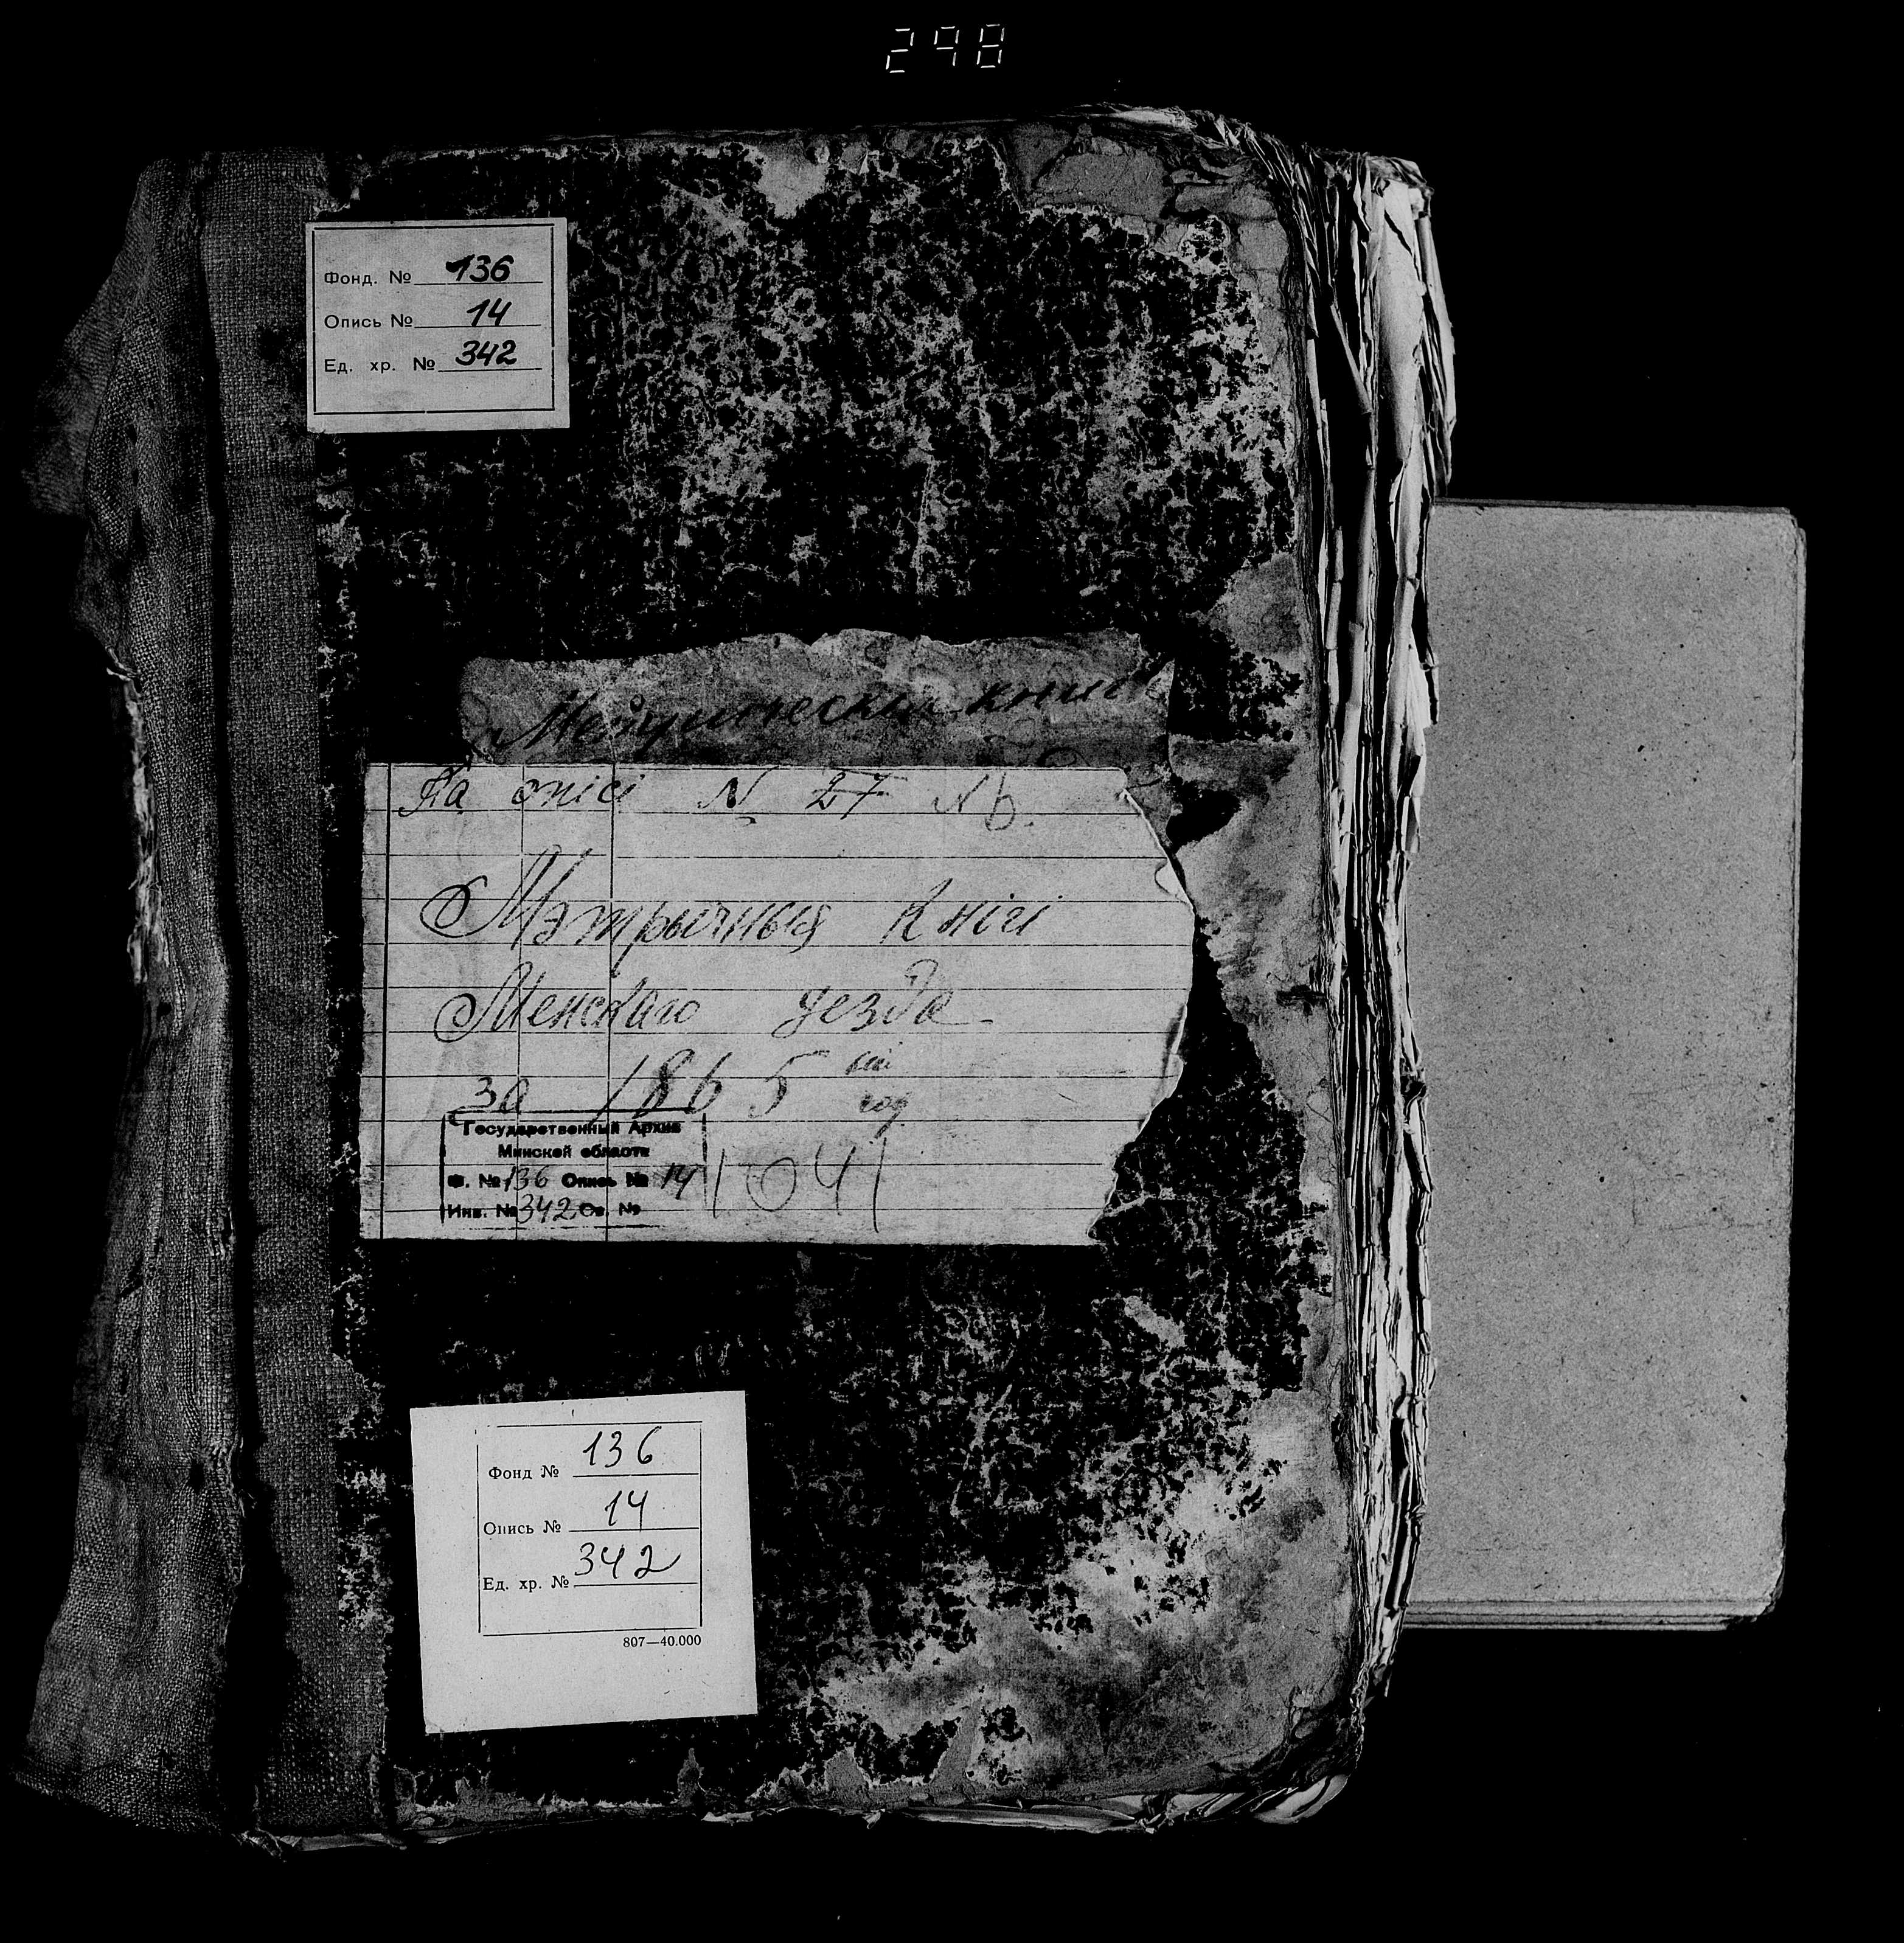 298
Фонд. № 136
Опись № 14
Ед. хр. № 342
Метрическия книги
Па опісі № 27
Мэтрычныя Кнігі
Менскаго уезда
за 1865 ый год
Государственный Архив
Минской области
Ф. № 136 Опись № 14
Инв. № 342 Св. №
1041
Фонд № 136
Опись № 14
Ед. хр. № 342
807—40.000